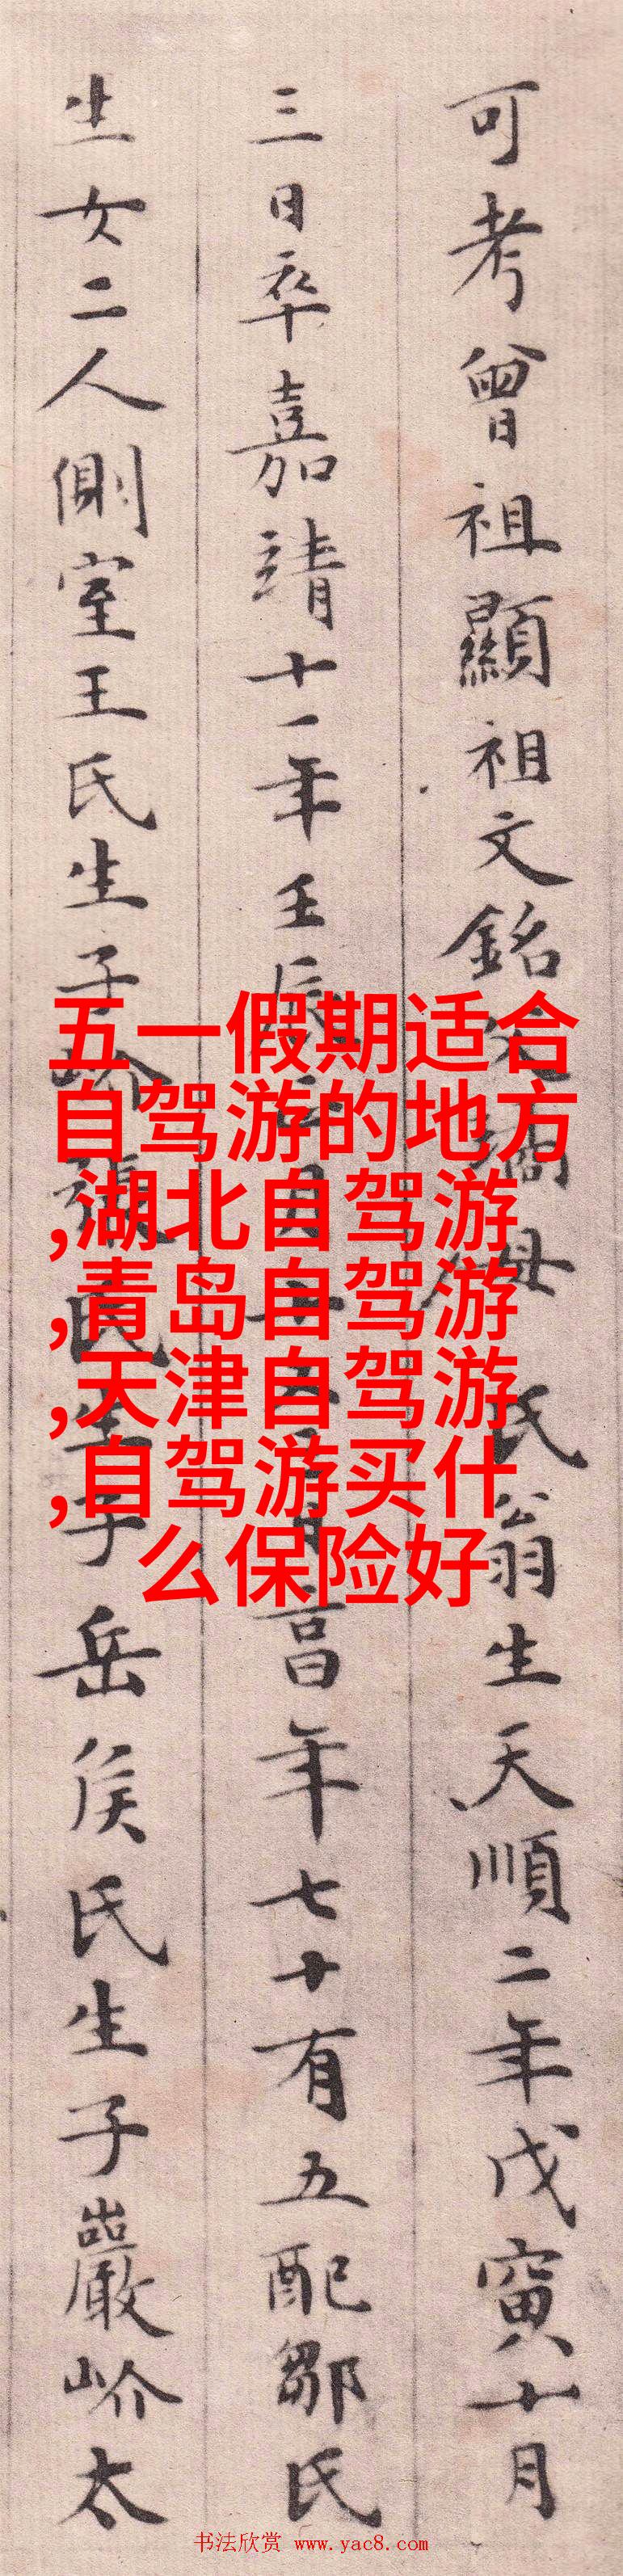 可考曾祖顯祖文銘父母氏翁生天順二年戊寅十月
三日卒嘉靖十一年壬辰月年七十有五配鄒氏
生女二人側室王氏生子岳侯氏生子巖岕太
五一假期适合
自驾游的地方
,湖北自驾游
,青岛自驾游
,天津自驾游
,自驾游买什
么保险好
书法欣赏 www.yac8.com